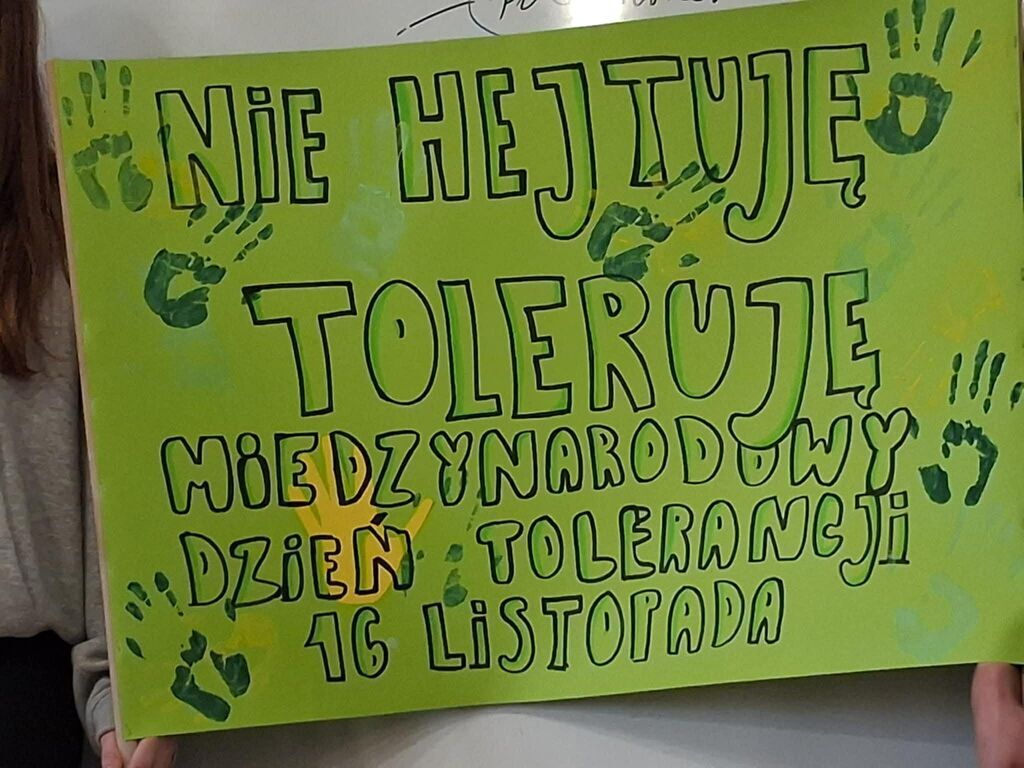 NiE HEJTUJĘ
TOLERUJĘ
MiEDZYNARODOWY
DZiEŃ TOLERANCJi
16 LiSTOPADA